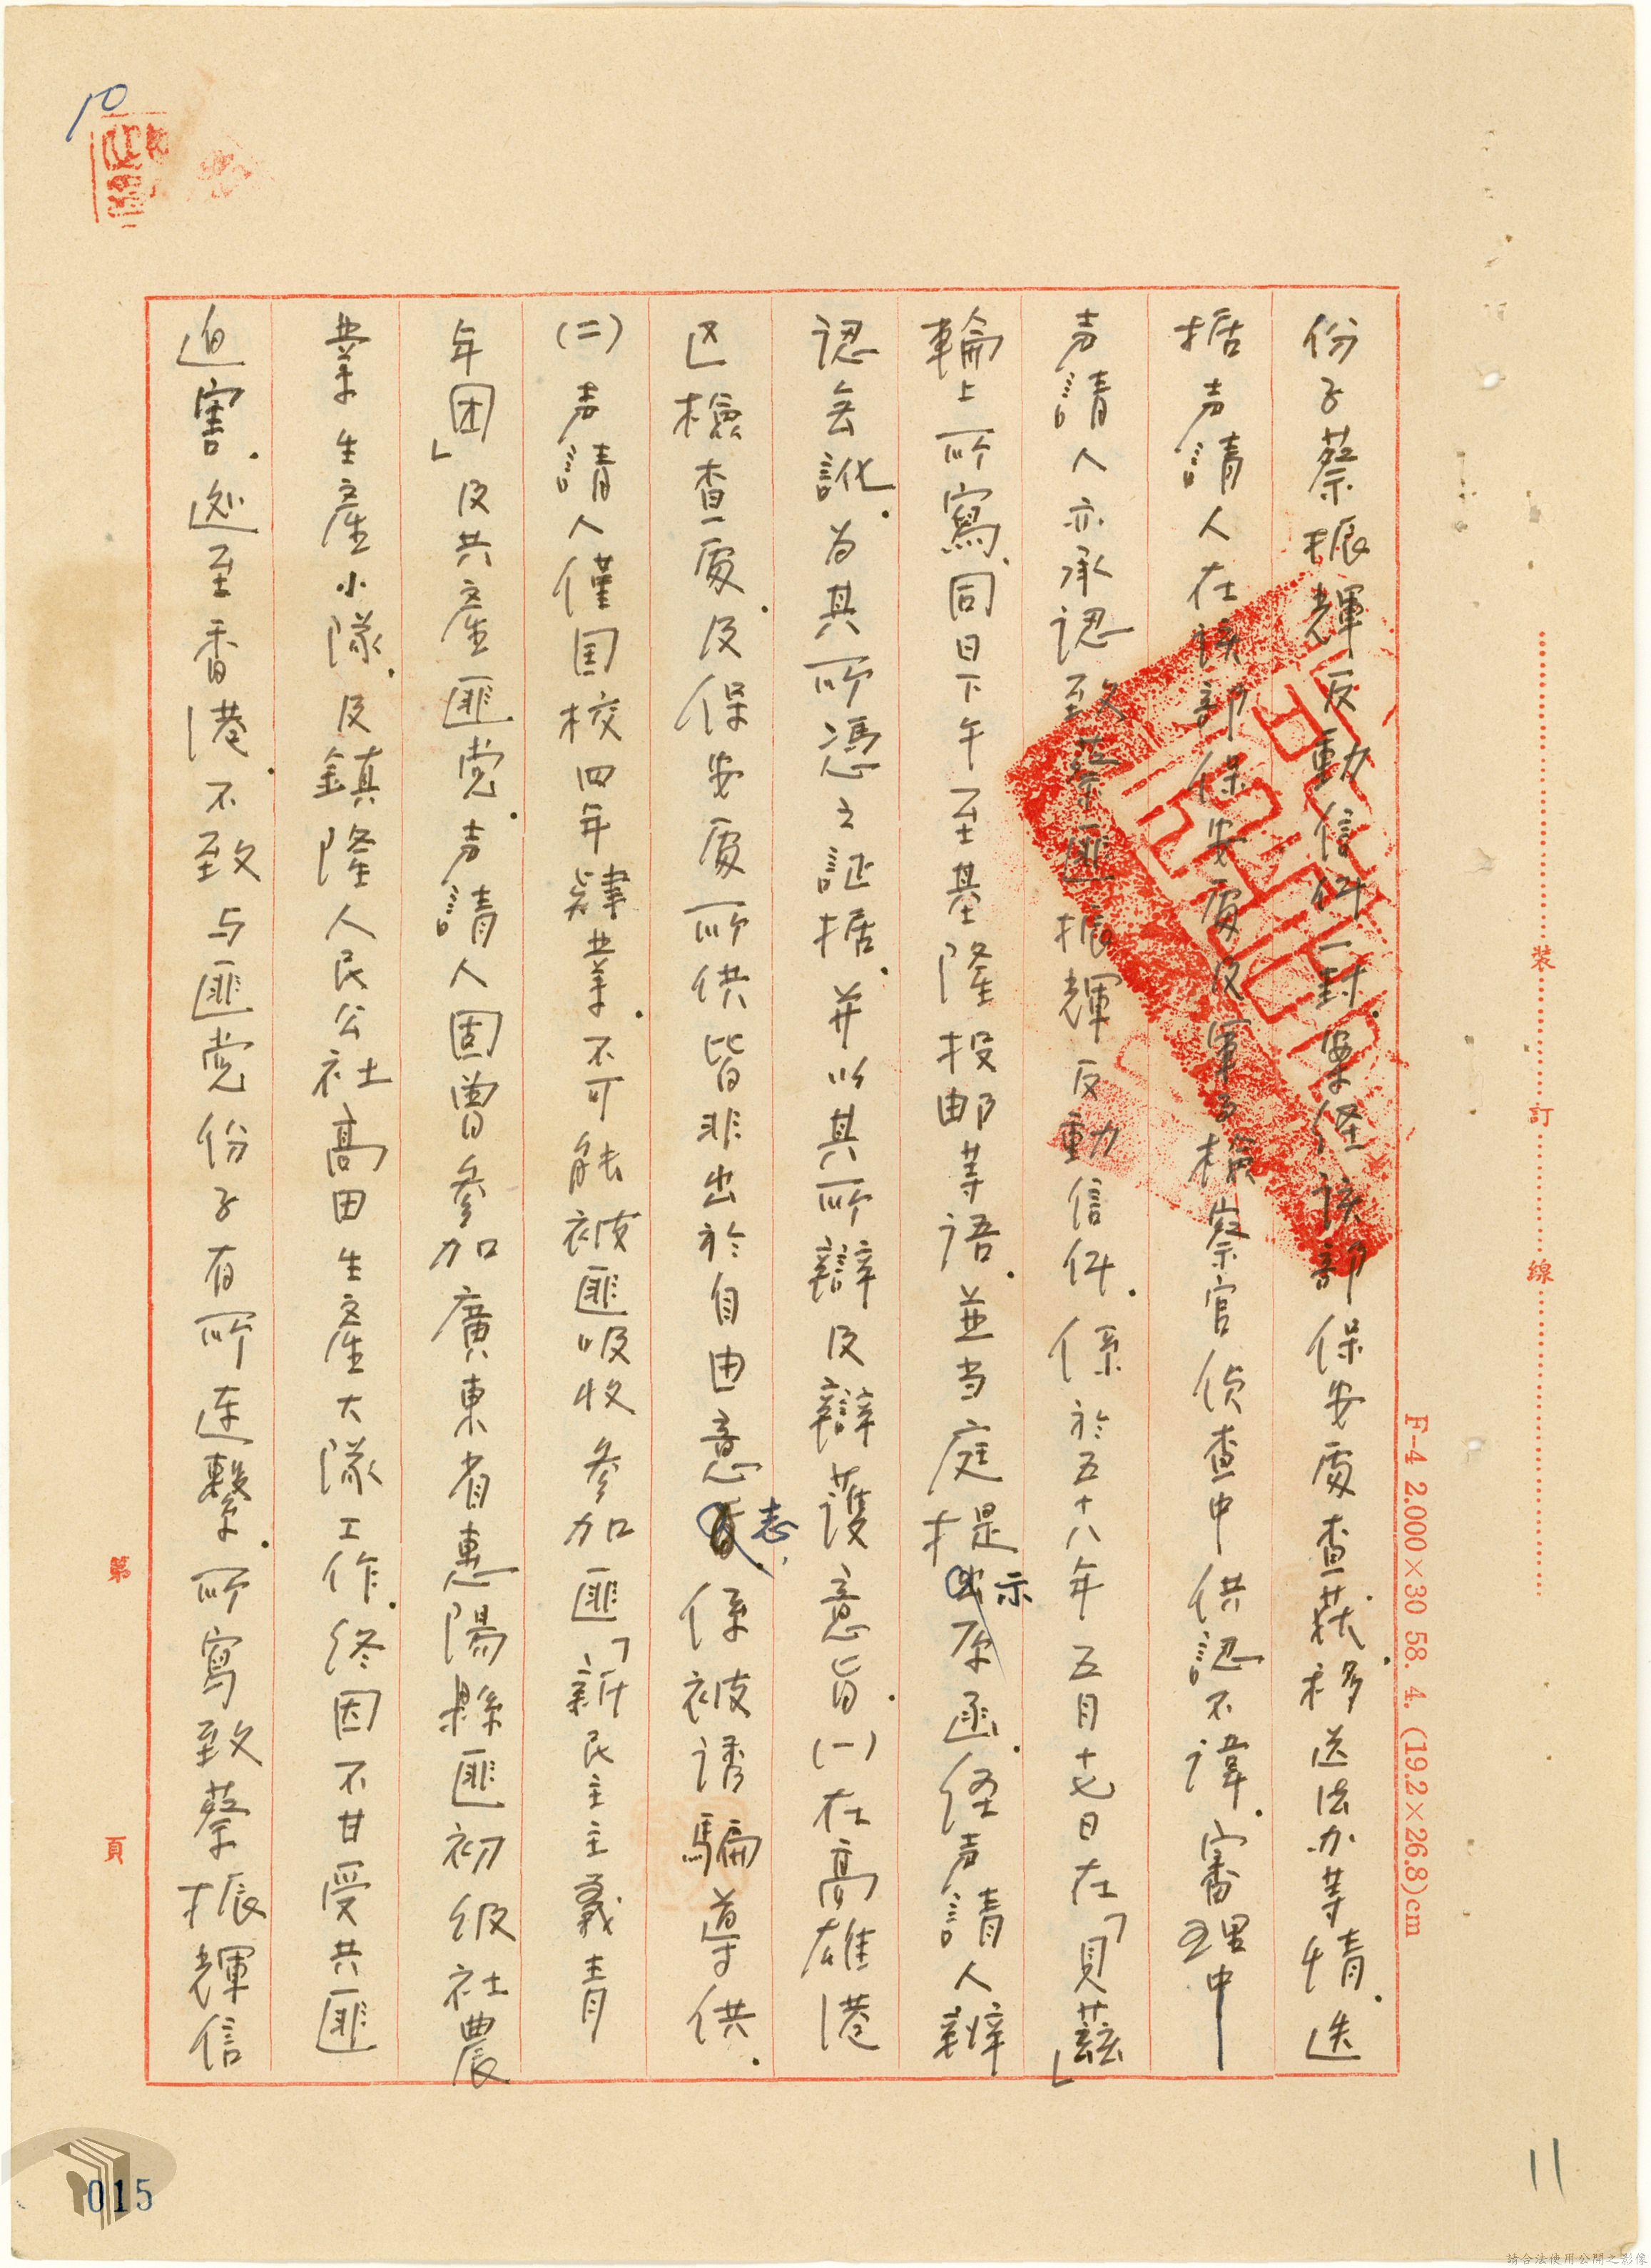 10
份子蔡振輝反動信件一封.案經該部保安處查获.移送法办等情.迭
据声請人在該部保安處及軍事檢察官偵查中供認不諱.審理中
声請人亦承認致蔡匪振輝反動信件.係於五十八年五月十七日在「貝茲」
輪上所寫、同日下午至基隆投邮等語.並当庭提示原函.经声請人辨
認無訛.为其所憑之証据.并以其所辯及辯護意旨.(一)在高雄港
区檢查處.及保安處所供皆非出於自由意志,係被诱騙導供.
(二)声請人僅国校四年肄業.不可能被匪吸收參加匪「新民主主義青
年团」及共產匪党.声請人固曾參加廣東省惠陽縣匪初级社農
業生產小隊.及鎮隆人民公社高田生產大隊工作.終因不甘受共匪
迫害.逃至香港.不致与匪党份子有所連繫.所寫致蔡振輝信
裝
訂
線
F-4 2.000×30 58. 4. (19.2×26.8)cm
第
頁
11
015
請合法使用公開之影像